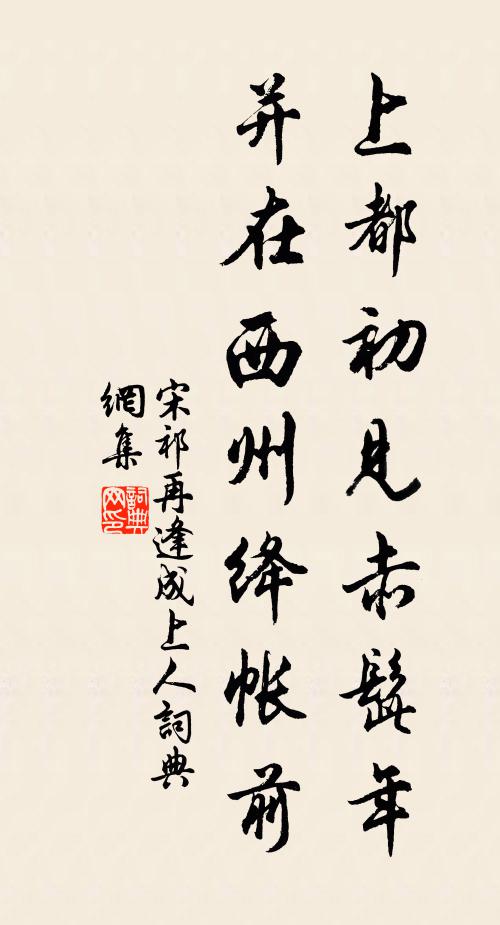 上都初見赤髭年
并在西州绛帳前
宋祁再逢成上人詞典
網集
詞典
网印